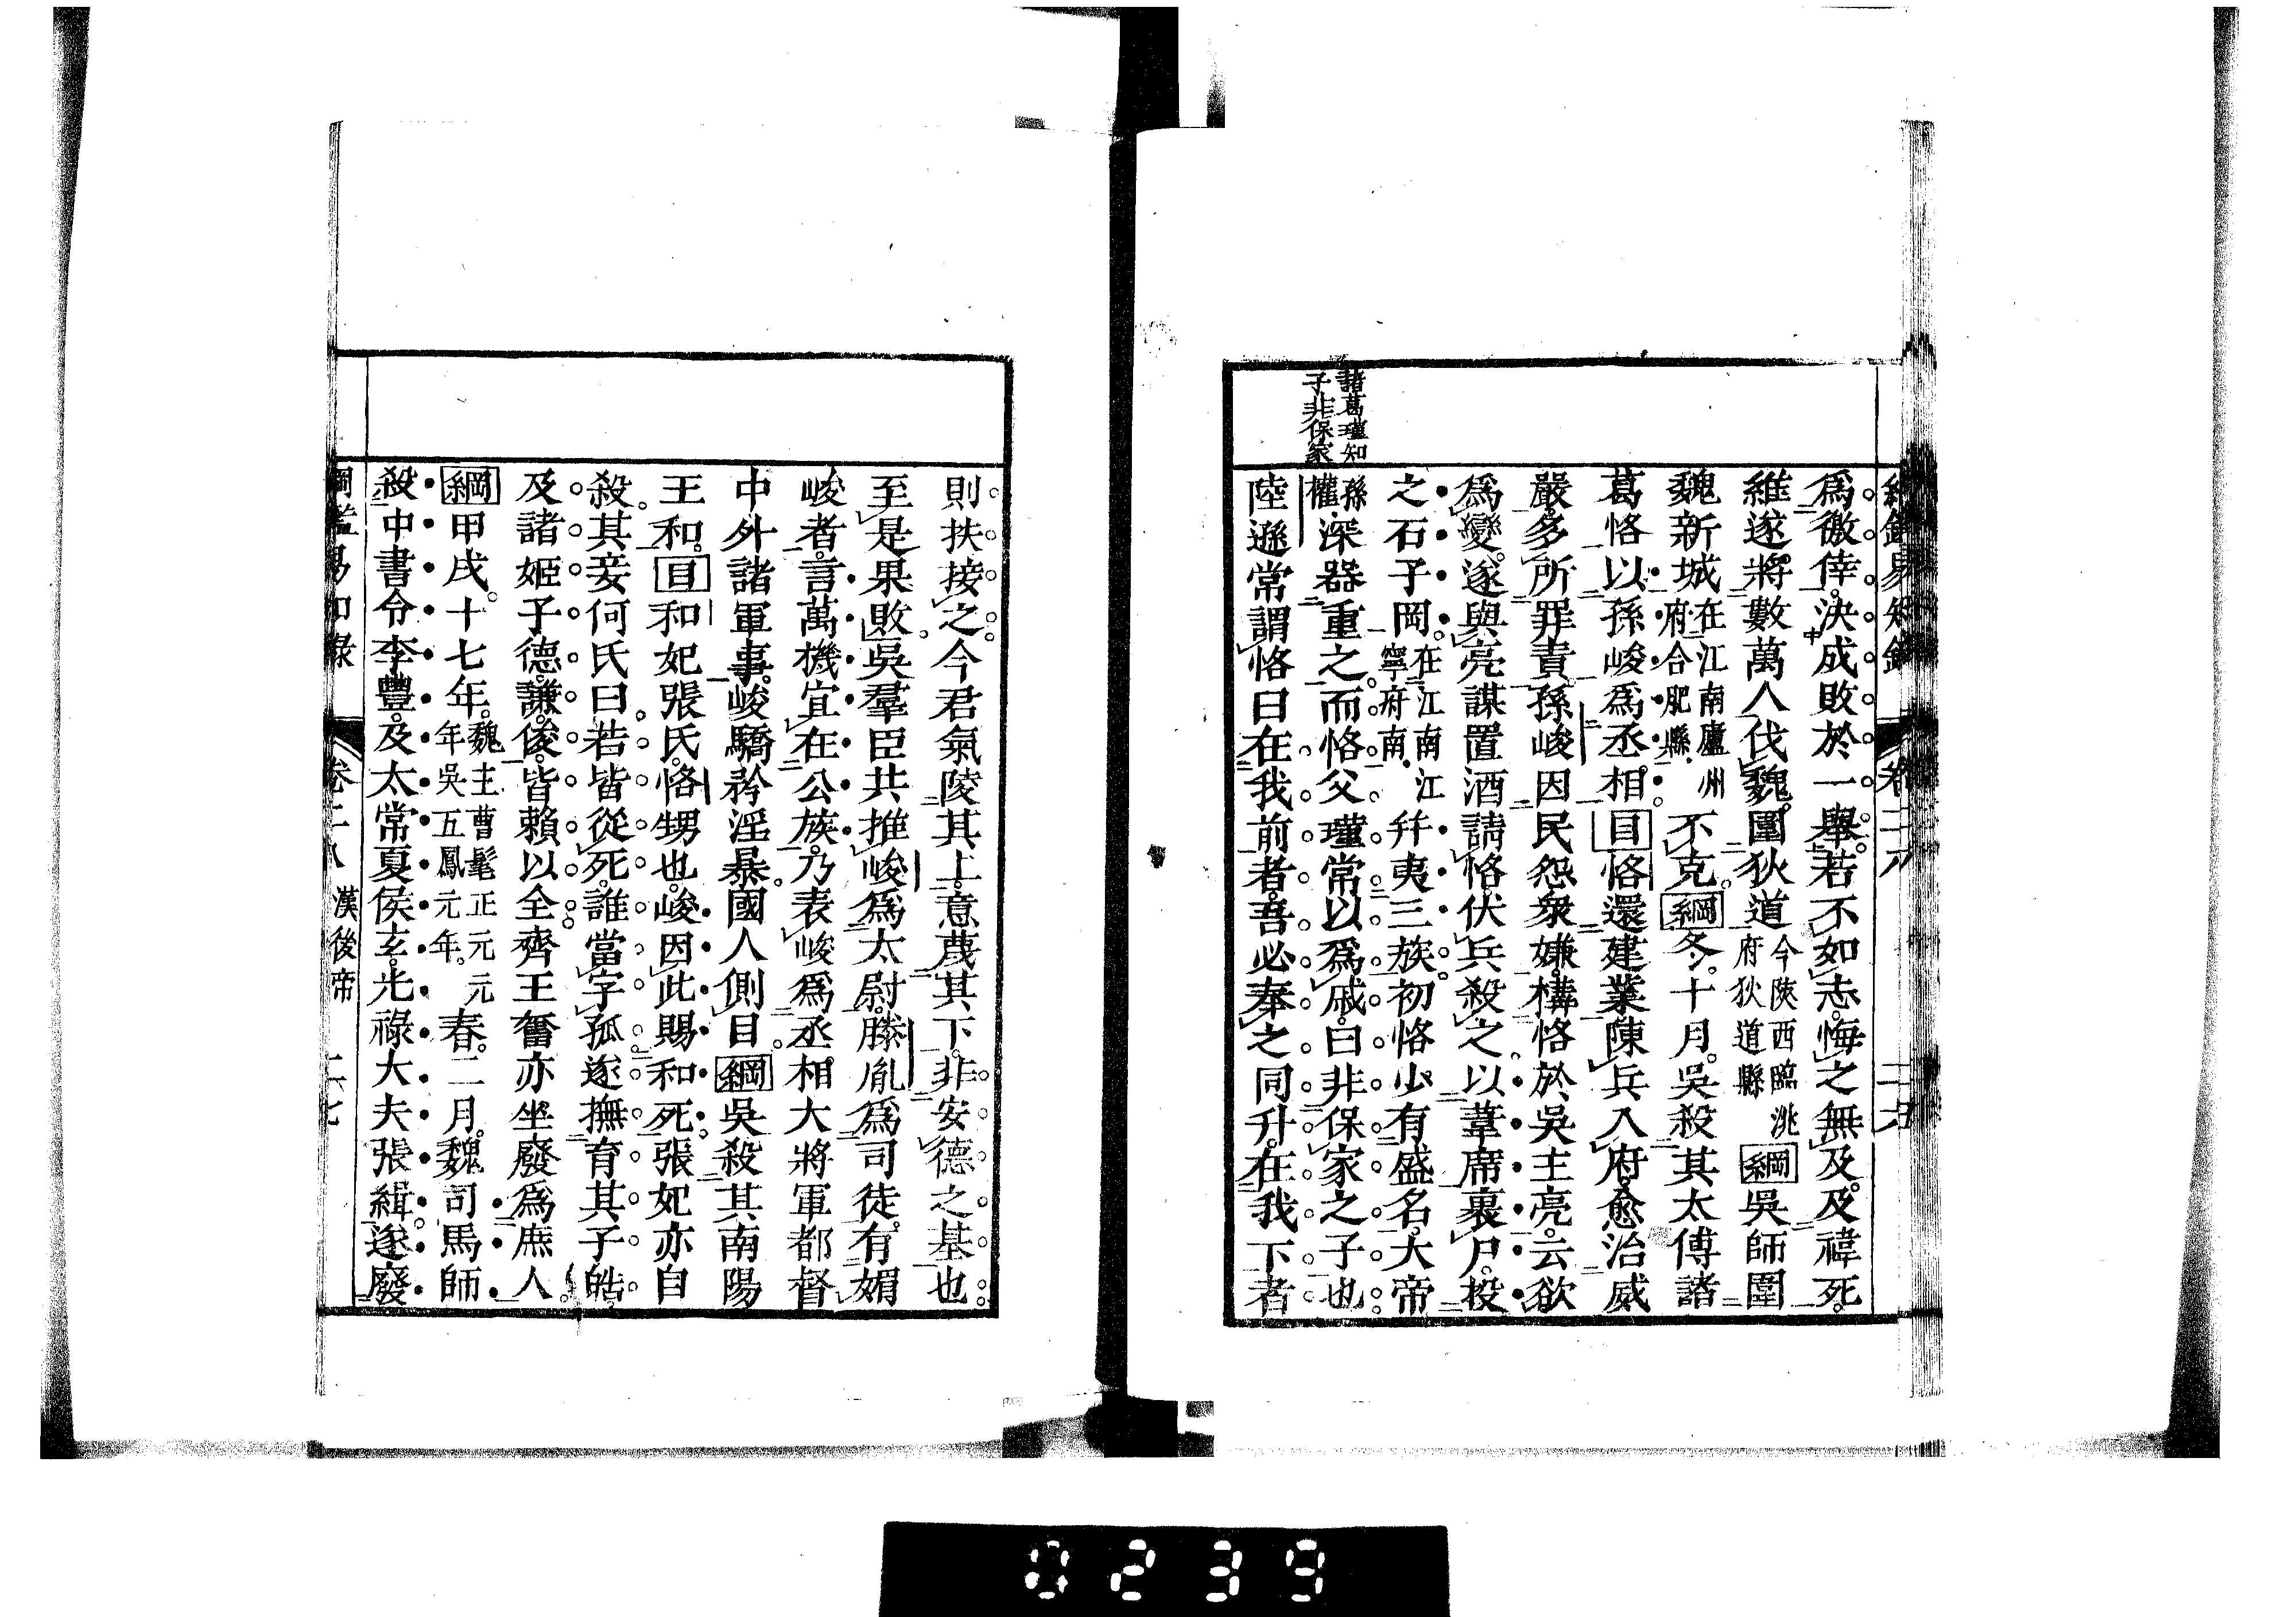 綱鑑易知錄 卷二十八 二十六
爲徼倖決成敗於一舉若不如志悔之無及及禕死
維遂將數萬人伐魏圍狄道今陝西臨洮府狄道縣綱吳師圍
魏新城在江南廬州府合肥縣不克綱冬十月吳殺其太傅諸
葛恪以孫峻爲丞相目恪還建業陳兵入府愈治威
嚴多所罪責孫峻因民怨衆嫌構恪於吳主亮云欲
爲變遂與亮謀置酒請恪伏兵殺之以葦席裹尸投
之石子岡在江南江寧府南并夷三族初恪少有盛名大帝
孫權深器重之而恪父瑾常以爲戚曰非保家之子也
諸葛瑾知子非保家
陸遜常謂恪曰在我前者吾必奉之同升在我下者
則扶接之今君氣陵其上意蔑其下非安德之基也
至是果敗吳羣臣共推峻爲太尉滕胤爲司徒有媚
峻者言萬機宜在公族乃表峻爲丞相大將軍都督
中外諸軍事峻驕矜淫暴國人側目綱吳殺其南陽
王和目和妃張氏恪甥也峻因此賜和死張妃亦自
殺其妾何氏曰若皆從死誰當字孤遂撫育其子皓
及諸姬子德謙俊皆賴以全齊王奮亦坐廢爲庶人
綱甲戌十七年魏主曹髦正元元年吳五鳳元年春二月魏司馬師
殺中書令李豐及太常夏侯玄光祿大夫張緝遂廢
綱鑑易知錄 卷二十八 漢後帝 二十七
0239